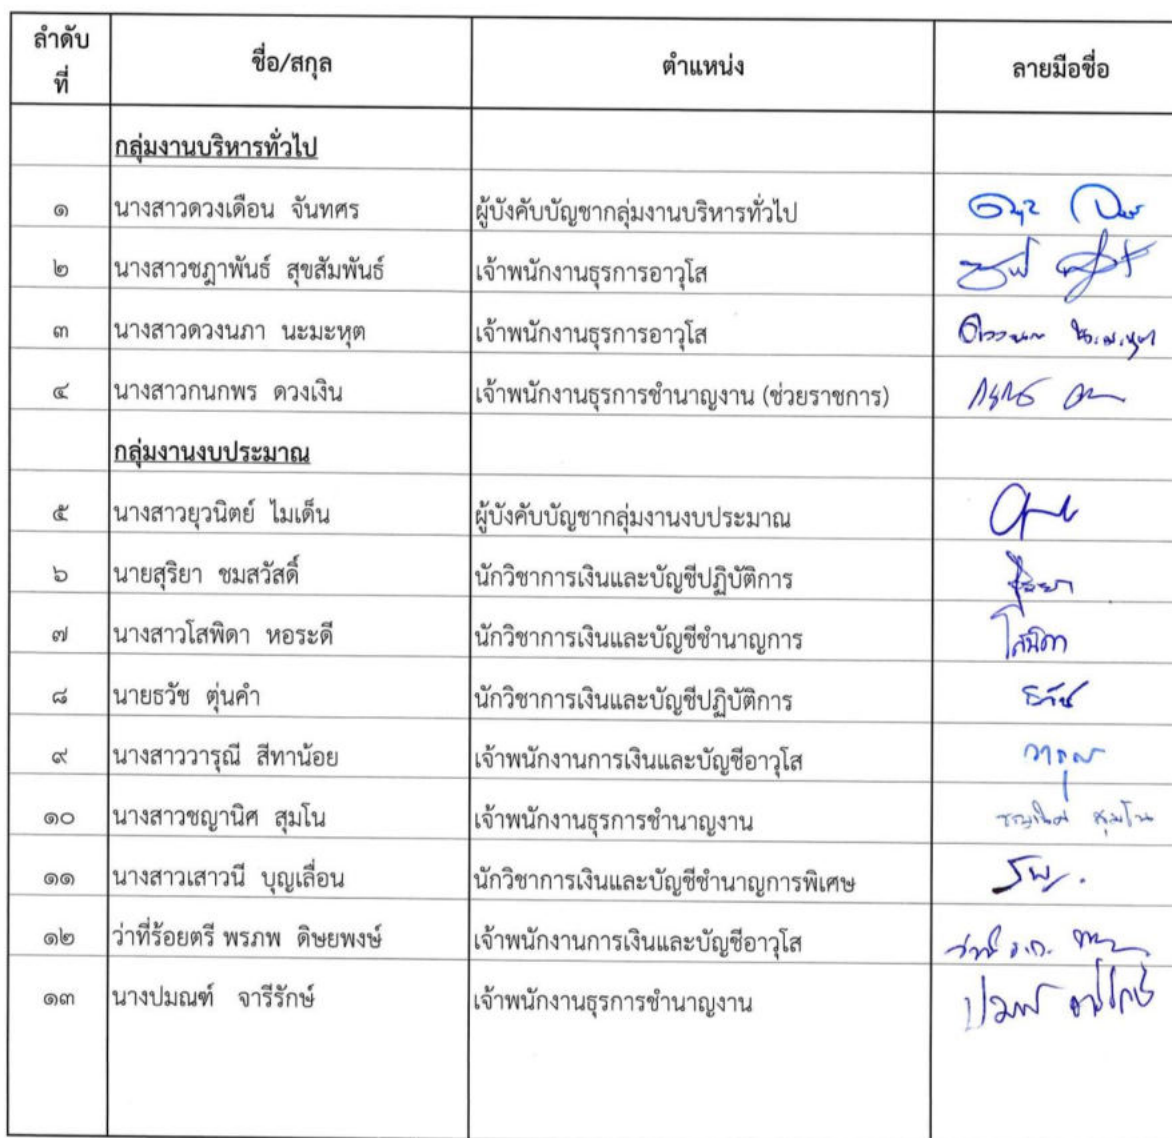 ลำดับ
ที่
ชื่อ/สกุล
ตำแหน่ง
ลายมือชื่อ
กลุ่มงานบริหารทั่วไป
๑ นางสาวดวงเดือน จันทศร ผู้บังคับบัญชากลุ่มงานบริหารทั่วไป
๒ นางสาวชฎาพันธ์ สุขสัมพันธ์ เจ้าพนักงานธุรการอาวุโส
๓ นางสาวดวงนภา นะมะหุต เจ้าพนักงานธุรการอาวุโส
๔ นางสาวกนกพร ดวงเงิน เจ้าพนักงานธุรการชำนาญงาน (ช่วยราชการ)
กลุ่มงานงบประมาณ
๕ นางสาวยุวนิตย์ ไมเด็น ผู้บังคับบัญชากลุ่มงานงบประมาณ
๖ นายสุริยา ชมสวัสดิ์ นักวิชาการเงินและบัญชีปฏิบัติการ
๗ นางสาวโสพิดา หอระดี นักวิชาการเงินและบัญชีชำนาญการ โสพิดา
๘ นายธวัช ตุ่นคำ นักวิชาการเงินและบัญชีปฏิบัติการ ธวัช
๙ นางสาววารุณี สีทาน้อย เจ้าพนักงานการเงินและบัญชีอาวุโส
๑๐ นางสาวชญานิศ สุมโน เจ้าพนักงานธุรการชำนาญงาน ชญานิศ สุมโน
๑๑ นางสาวเสาวนี บุญเลื่อน นักวิชาการเงินและบัญชีชำนาญการพิเศษ
๑๒ ว่าที่ร้อยตรี พรภพ ดิษยพงษ์ เจ้าพนักงานการเงินและบัญชีอาวุโส
๑๓ นางปมณฑ์ จารีรักษ์ เจ้าพนักงานธุรการชำนาญงาน